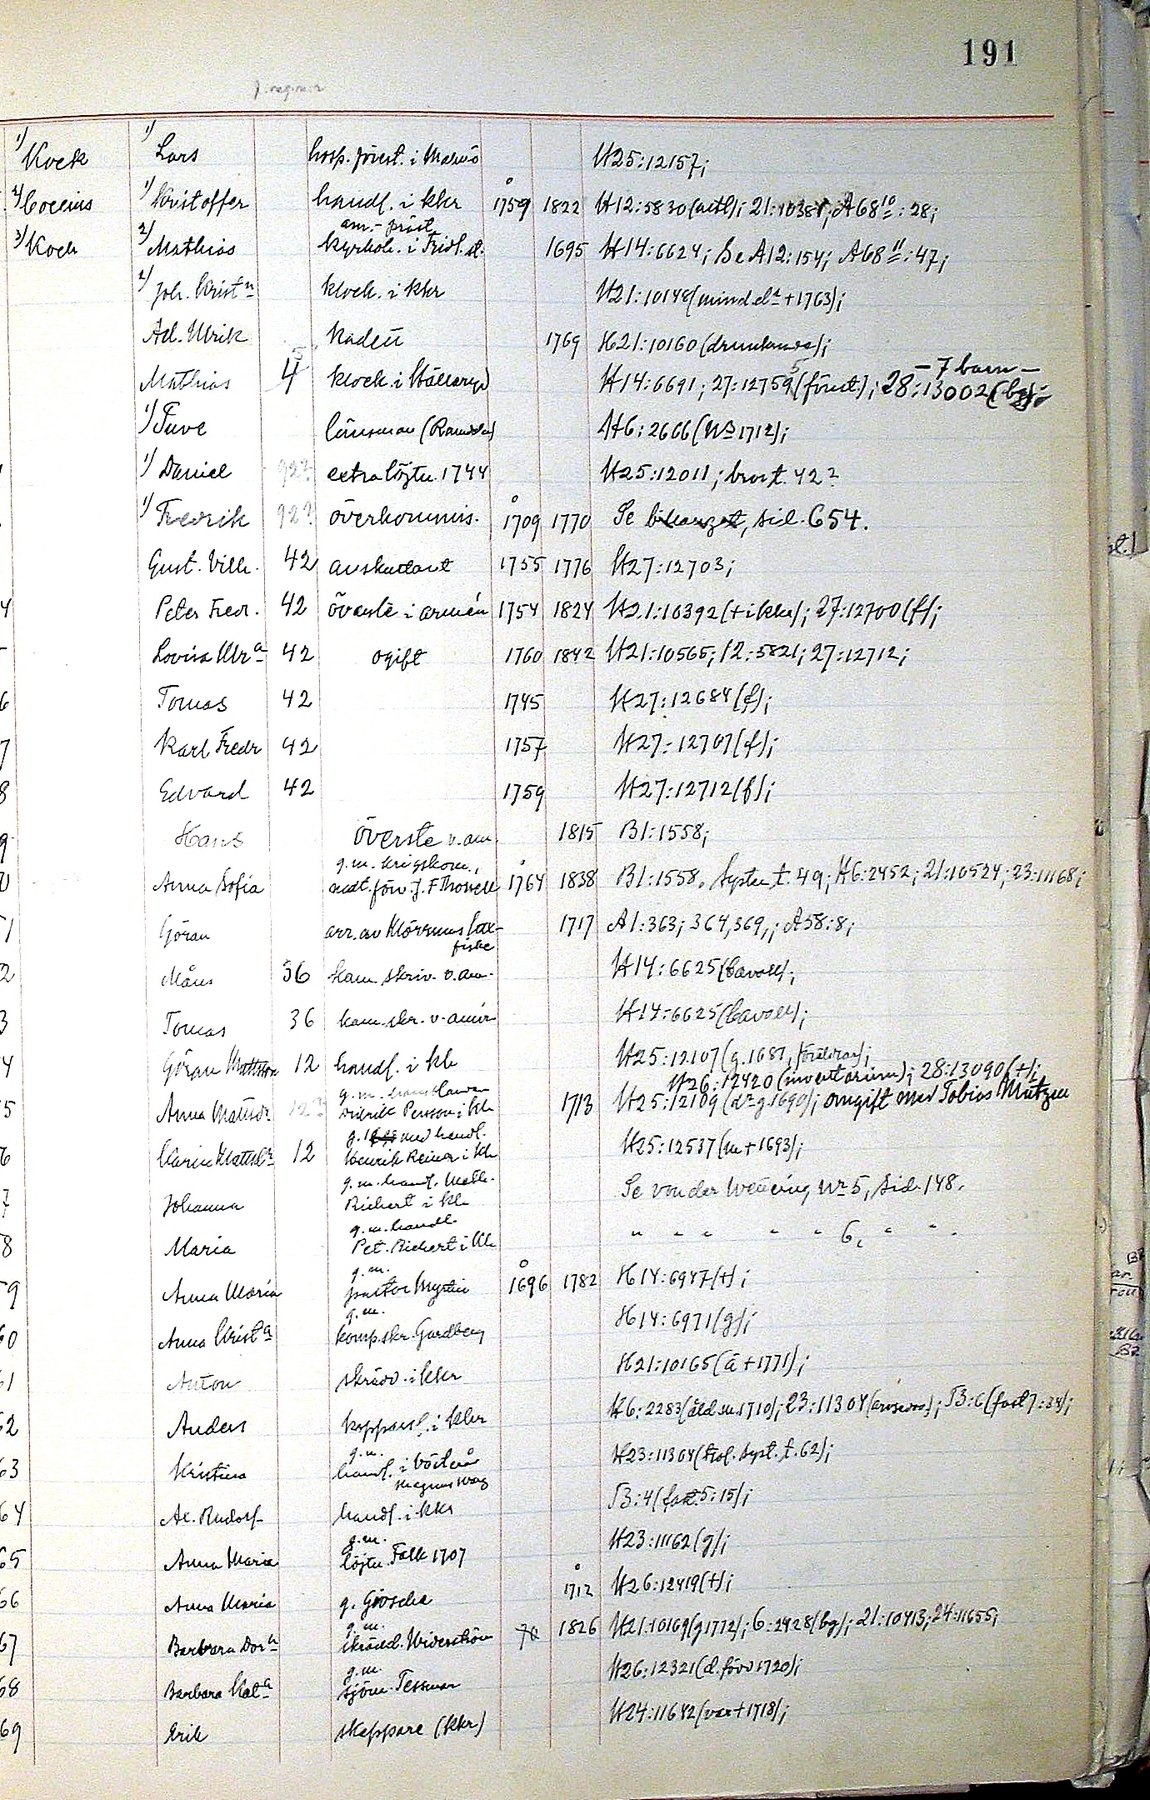 191
1) Kock 1) Lars hosp. förest. i Malmö H25:12157;
2) Coccius 1) Kristoffer handl. i kkr 1759 1822 H12:5830 (acth); 21:10381; A68 10:28;
am.-präst
3) Koch 2) Mathias kyrkoh. i Fridl.st. 1695 H14:6624; Se A12:154; A68 11:47;
2) Joh. Krist n klock. i kkr H21:10148 (mind.del a +1763);
Ad. Ulrik kadett 1769 H21:10160 (drunknade);
– 7 barn –
Mathias 4 klock. i Hällaryd H14:6691; 27:12759 (förest.); 28:13002 (bg);
1) Tuve länsman H6:2606 (No 1712);
1) Daniel 92? extra löjtn. 1744 H25:12011; brors t. 42?
1) Fredrik 92? överkommis. 1709 1770 Se , sid. 654.
Gust. Vilh. 42 auskultant 1755 1776 H27:12703;
Peter Fredr. 42 överste i armén 1754 1824 H21:10392 (+ i kka); 27:12700 (f);
Lovisa Ulr a 42 ogift 1760 1842 H21:10565; 12:5821; 27:12712;
Tomas 42 1745 H27:12684 (f);
Karl Fredr 42 1757 H27:12707 (f);
Edvard 42 1759 H27:12712 (f);
Hans överste v. am. 1815 B1:1558;
g.m. krigskom.,
Anna Sofia amt. förv. J. F. Thorsell 1764 1838 B1:1558, Syster t. 49; H6:2452; 21:10524; 23:11168;
Göran arr. av Mörrums lax- 1717 A1:363; 364, 369,; A58:8;
fiske
Måns 36 kam. skriv. v. am. H14:6625 (Cavall);
Tomas 36 kam. skr. v. amir H14:6625 (Cavall);
Göran Mattsson 12 handl. i kh H25:12107 (g. 1687, föräldrar);
H26:12420 (inventarium); 28:13090 (+);
g.m. handlanden
Anna Matsdr 12? Didrik Persson i kh 1713 H25:12109 (do g 1690); omgift med Tobias Mützen
g. med handl.
Karin Mattsdr 12 Henrik Reimer i kh H25:12537 (m + 1693);
g.m. handl. Math.
Johanna Richert i kh Se von der Wettering No 5, sid. 148.
g.m. handl.
Maria Pet. Richert i kh " " " " " 6, " " .
g.m.
59 Anna Maria pastor Mystin 1696 1782 H14:6947 (+);
g.m.
60 Anna Krist a komp.skr. Gardberg H14:6971 (g);
61 Anton skrädd. i kkr H21:10165 (ä + 1771);
62 Anders kopparsl. i kkr H6:2283 (äld.m. 1710); 23:11304; J3:6 (fast 7:34);
g.m.
63 Kristina handl. i Västerås H23:11304 (trol. syst. t. 62);
Magnus Wag
64 Ax. Rudolf handl. i kkr J3:4 (fast. 5:15);
g.m.
65 Anna Maria löjtn. Falk 1707 H23:11162 (g);
66 Anna Maria g. Groscha 1712 H26:12419 (+);
g.m.
67 Barbara Dor a skrädd. Widerström 1826 H21:10169 (g 1772); 6:2428 (bg); 21:10413; 24:11655;
g.m.
68 Barbara Kat a sjöm. Tessmar H26:12321 (d. före 1720);
69 Erik skeppare (kkr) H24:11642 (var + 1718);